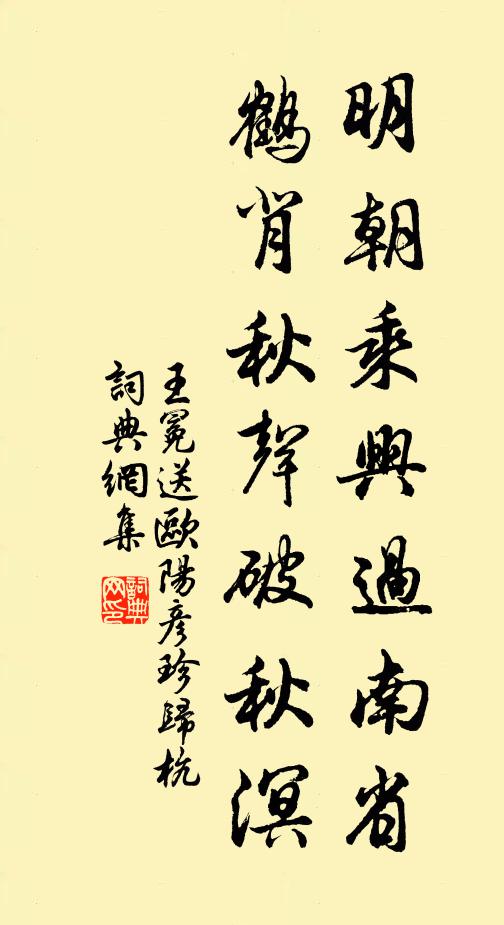 明朝乘興過南省
鶴背秋聲破秋溟
王冕送歐陽彥珍歸杭
詞典網集
詞典網印